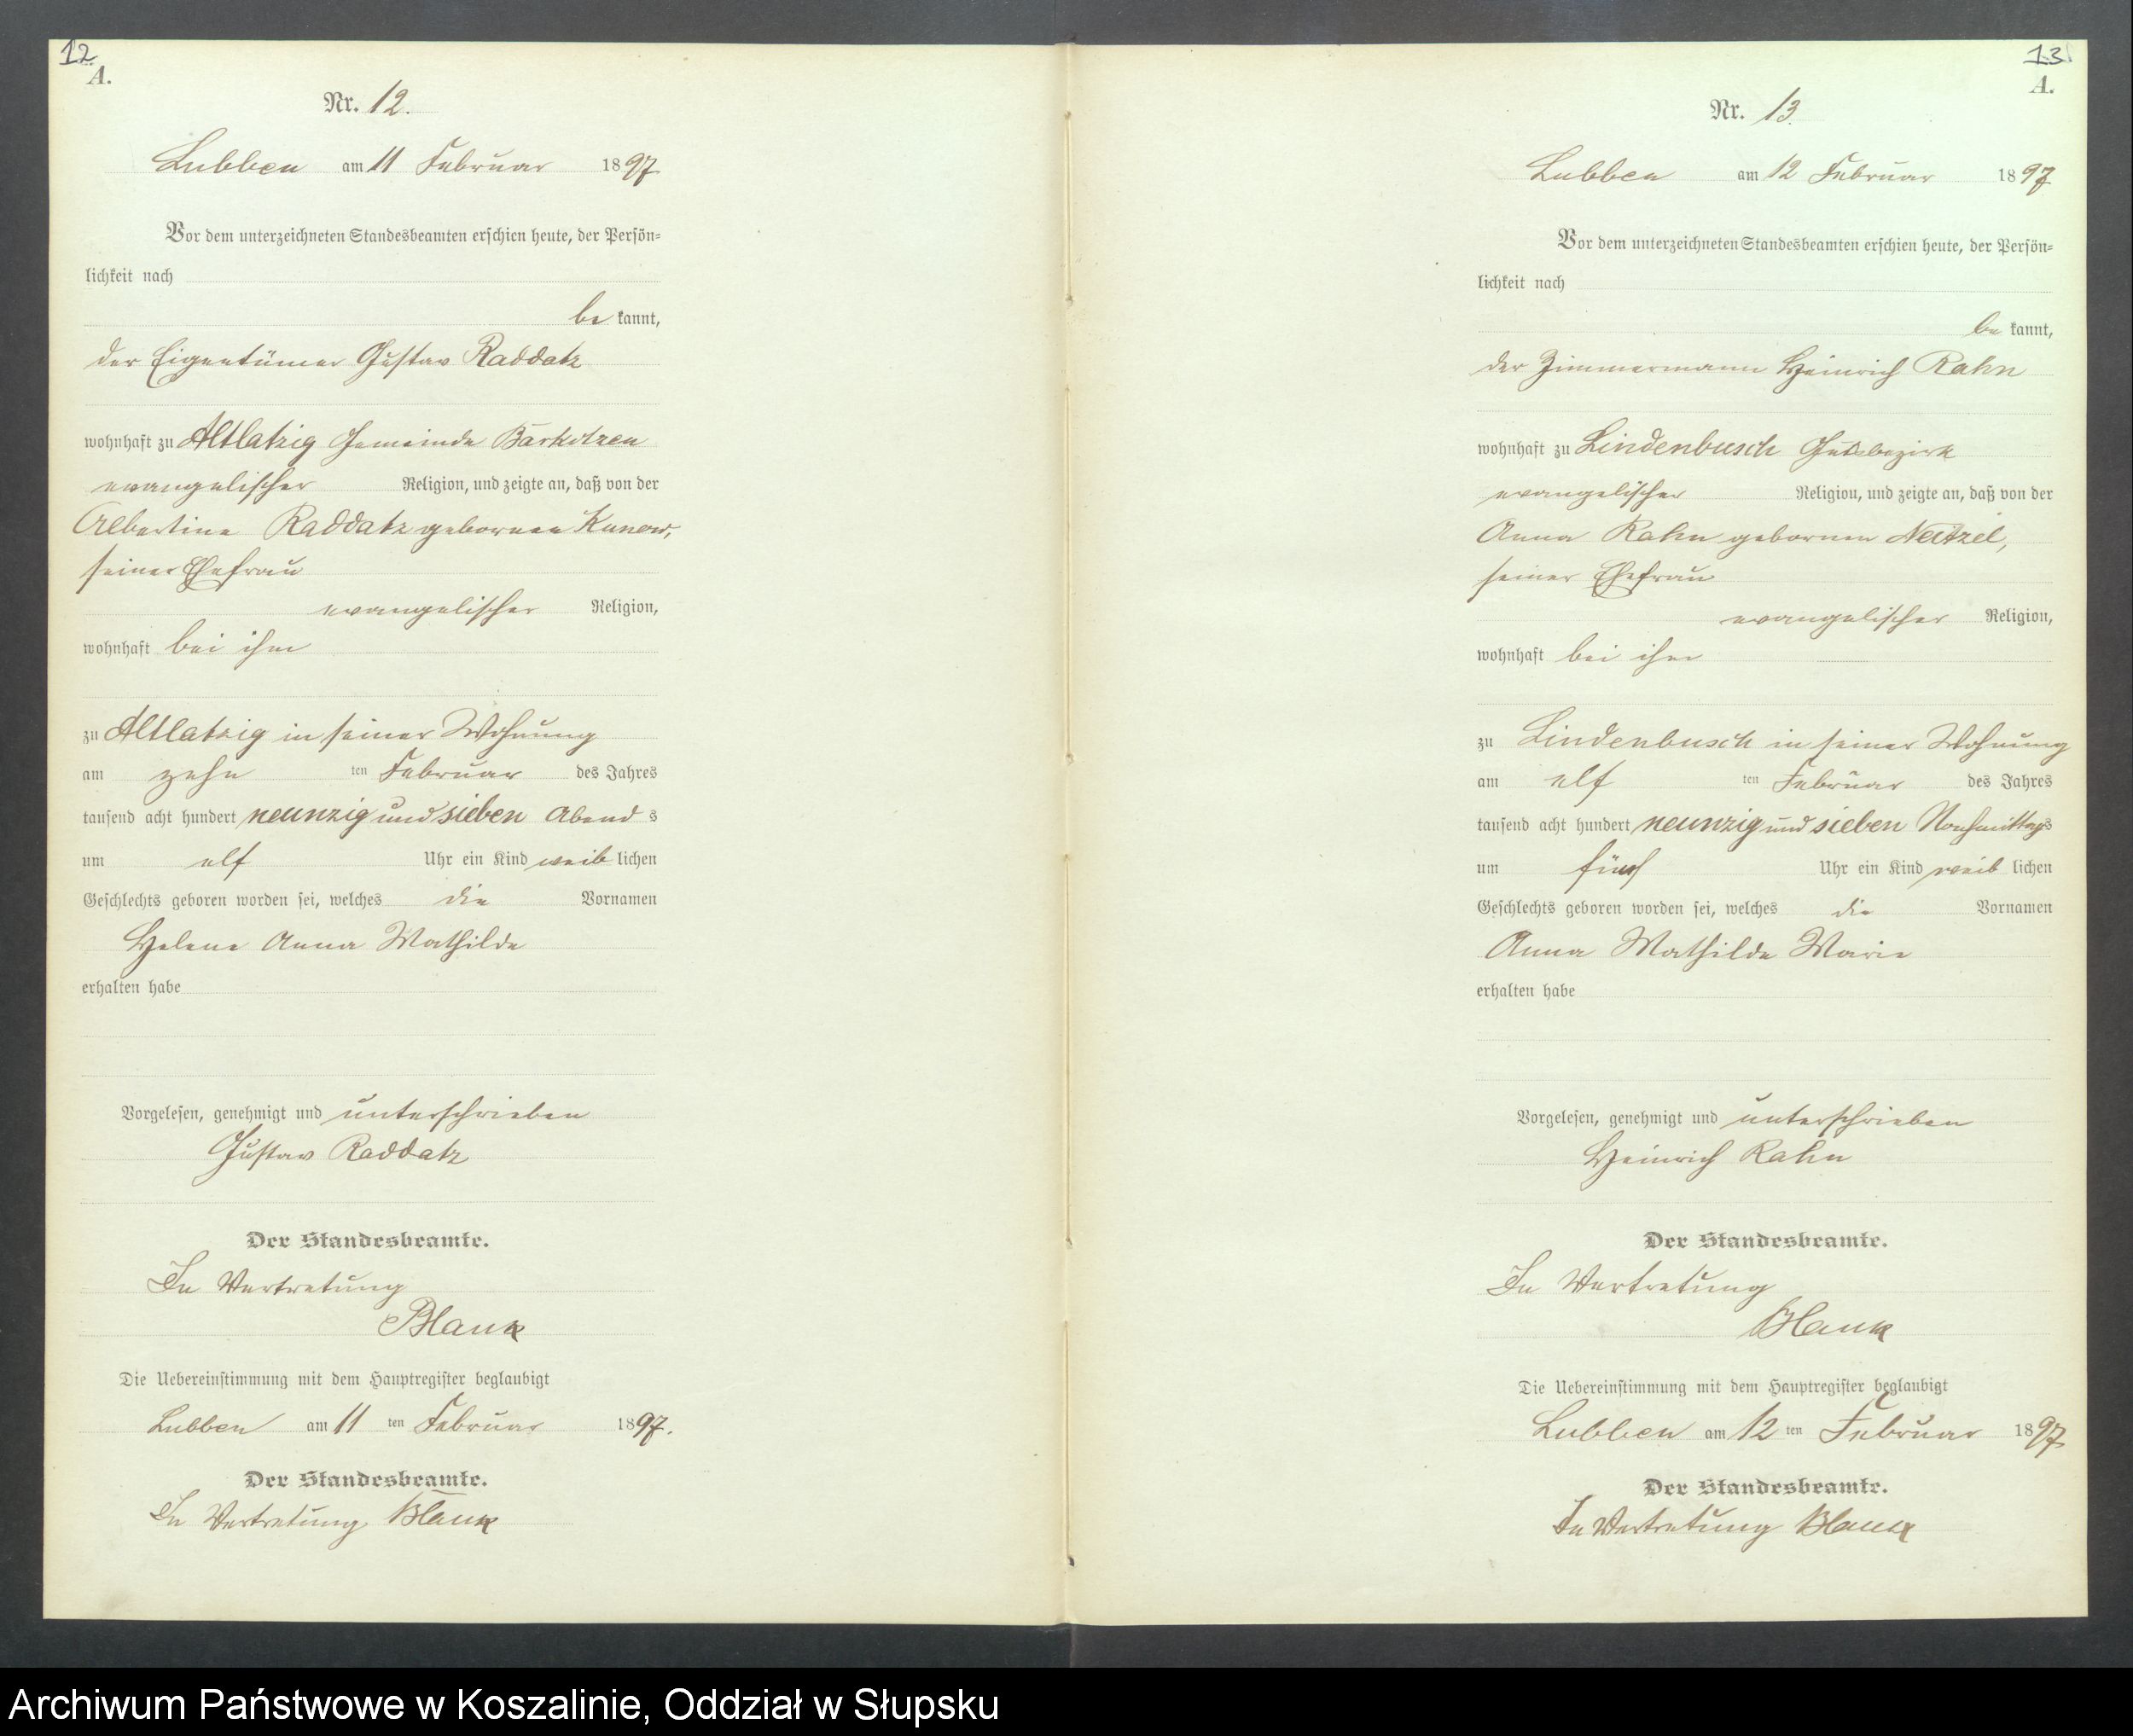 12
A.
Nr. 12.
Lubben am 11 Februar 1897
Vor dem unterzeichneten Standesbeamten erschien heute, der Persön-
lichkeit nach
be kannt,
der Eigentümer Gustav Raddatz
wohnhaft zu Altlatzig Gemeinde Barkotzen
evangelischer Religion, und zeigte an, daß von der
Albertine Raddatz gebornen Kunow,
seiner Ehefrau
evangelischer Religion,
wohnhaft bei ihm
zu Altlatzig in seiner Wohnung
am zehn ten Februar des Jahres
tausend acht hundert neunzig und sieben Abend s
um elf Uhr ein Kind weib lichen
Geschlechts geboren worden sei, welches die Vornamen
Helene Anna Mathilde
erhalten habe
Vorgelesen, genehmigt und unterschrieben
Gustav Raddatz
Der Standesbeamte.
In Vertretung
Blank
Die Uebereinstimmung mit dem Hauptregister beglaubigt
Lubben am 11 ten Februar 1897.
Der Standesbeamte.
In Vertretung Blank
13
A.
Nr. 13.
Lubben am 12 Februar 1897
Vor dem unterzeichneten Standesbeamten erschien heute, der Persön-
lichkeit nach
be kannt,
der Zimmermann Heinrich Rahn
wohnhaft zu Lindenbusch Gutsbezirk
evangelischer Religion, und zeigte an, daß von der
Anna Rahn gebornen Neitzel,
seiner Ehefrau
evangelischer Religion,
wohnhaft bei ihm
zu Lindenbusch in seiner Wohnung
am elf ten Februar des Jahres
tausend acht hundert neunzig und sieben Nachmittags
um fünf Uhr ein Kind weib lichen
Geschlechts geboren worden sei, welches die Vornamen
Anna Mathilde Marie
erhalten habe
Vorgelesen, genehmigt und unterschrieben
Heinrich Rahn
Der Standesbeamte.
In Vertretung
Blank
Die Uebereinstimmung mit dem Hauptregister beglaubigt
Lubben am 12 ten Februar 1897
Der Standesbeamte.
In Vertretung Blank
Archiwum Państwowe w Koszalinie, Oddział w Słupsku